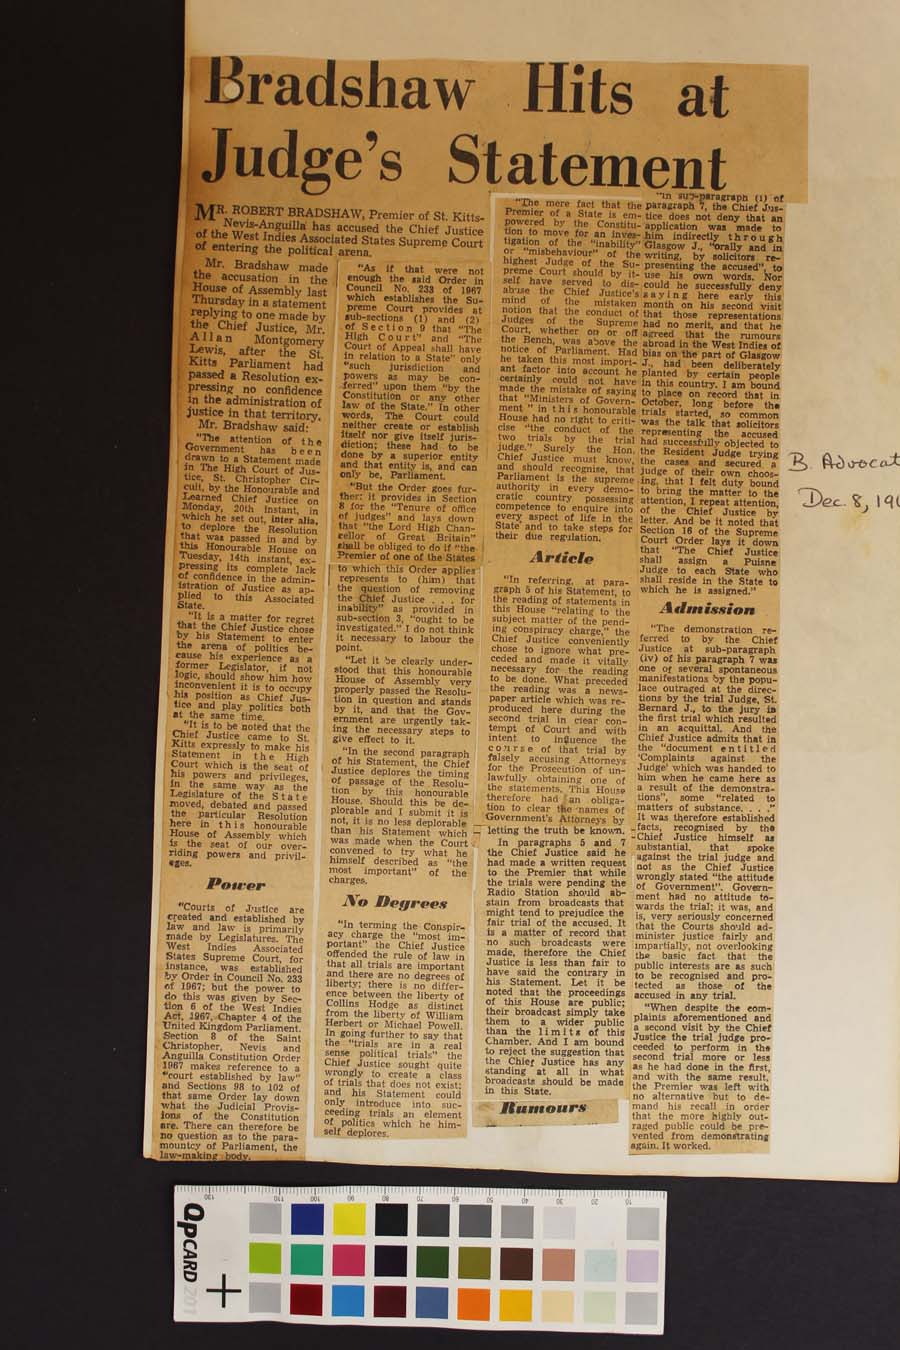 Bradshaw Hits at
Judge's Statement
MR. ROBERT BRADSHAW, Premier of St. Kitts-
Nevis-Anguilla has accused the Chief Justice
of the West Indies Associated States Supreme Court
of entering the political arena.
Mr. Bradshaw made
the accusation in the
House of Assembly last
Thursday in a statement
replying to one made by
the Chief Justice, Mr.
Allan Montgomery
Lewis, after the St.
Kitts Parliament had
passed a Resolution ex-
pressing no confidence
in the administration of
justice in that territory.
Mr. Bradshaw said:
"The attention of the
Government has been
drawn to a Statement made
in The High Court of Jus-
tice, St. Christopher Cir-
cuit, by the Honourable and
Learned Chief Justice on
Monday, 20th instant, in
which he set out, inter alia,
to deplore the Resolution
that was passed in and by
this Honourable House on
Tuesday, 14th instant, ex-
pressing its complete lack
of confidence in the admin-
istration of Justice as ap-
plied to this Associated
State.
"It is a matter for regret
that the Chief Justice chose
by his Statement to enter
the arena of politics be-
cause his experience as a
former Legislator, if not
logic, should show him how
inconvenient it is to occupy
his position as Chief Jus-
tice and play politics both
at the same time.
"It is to be noted that the
Chief Justice came to St.
Kitts expressly to make his
Statement in the High
Court which is the seat of
his powers and privileges,
in the same way as the
Legislature of the State
moved, debated and passed
the particular Resolution
here in this honourable
House of Assembly which
is the seat of our over-
riding powers and privil-
eges.
Power
"Courts of Justice are
created and established by
law and law is primarily
made by Legislatures. The
West Indies Associated
States Supreme Court, for
instance, was established
by Order in Council No. 233
of 1967; but the power to
do this was given by Sec-
tion 6 of the West Indies
Act, 1967, Chapter 4 of the
United Kingdom Parliament.
Section 8 of the Saint
Christopher, Nevis and
Anguilla Constitution Order
1967 makes reference to a
"court established by law"
and Sections 98 to 102 of
that same Order lay down
what the Judicial Provis-
ions of the Constitution
are. There can therefore be
no question as to the para-
mountcy of Parliament, the
law-making body.
"As if that were not
enough the said Order in
Council No. 233 of 1967
which establishes the Su-
preme Court provides at
sub-sections (1) and (2)
of Section 9 that "The
High Court" and "The
Court of Appeal shall have
in relation to a State" only
"such jurisdiction and
powers as may be con-
ferred" upon them "by the
Constitution or any other
law of the State." In other
words, The Court could
neither create or establish
itself nor give itself juris-
diction; these had to be
done by a superior entity
and that entity is, and can
only be, Parliament.
"But the Order goes fur-
ther: it provides in Section
8 for the "Tenure of office
of judges" and lays down
that "the Lord High Chan-
cellor of Great Britain"
shall be obliged to do if "the
Premier of one of the States
to which this Order applies
represents to (him) that
the question of removing
the Chief Justice . . . for
inability" as provided in
sub-section 3, "ought to be
investigated." I do not think
it necessary to labour the
point.
"Let it be clearly under-
stood that this honourable
House of Assembly very
properly passed the Resolu-
tion in question and stands
by it, and that the Gov-
ernment are urgently tak-
ing the necessary steps to
give effect to it.
"In the second paragraph
of his Statement, the Chief
Justice deplores the timing
of passage of the Resolu-
tion by this honourable
House. Should this be de-
plorable and I submit it is
not, it is no less deplorable
than his Statement which
was made when the Court
convened to try what he
himself described as "the
most important" of the
charges.
No Degrees
"In terming the Conspir-
acy charge the "most im-
portant" the Chief Justice
offended the rule of law in
that all trials are important
and there are no degrees of
liberty; there is no differ-
ence between the liberty of
Collins Hodge as distinct
from the liberty of William
Herbert or Michael Powell.
In going further to say that
the "trials are in a real
sense political trials" the
Chief Justice sought quite
wrongly to create a class
of trials that does not exist;
and his Statement could
only introduce into suc-
ceeding trials an element
of politics which he him-
self deplores.
"The mere fact that the
Premier of a State is em-
powered by the Constitu-
tion to move for an inves-
tigation of the "inability"
or "misbehaviour" of the
highest Judge of the Su-
preme Court should by it-
self have served to dis-
abuse the Chief Justice's
mind of the mistaken
notion that the conduct of
Judges of the Supreme
Court, whether on or off
the Bench, was above the
notice of Parliament. Had
he taken this most import-
ant factor into account he
certainly could not have
made the mistake of saying
that "Ministers of Govern-
ment " in this honourable
House had no right to criti-
cise "the conduct of the
two trials by the trial
judge." Surely the Hon.
Chief Justice must know,
and should recognise, that
Parliament is the supreme
authority in every demo-
cratic country possessing
competence to enquire into
every aspect of life in the
State and to take steps for
their due regulation.
Article
"In referring, at para-
graph 5 of his Statement, to
the reading of statements in
this House "relating to the
subject matter of the pend-
ing conspiracy charge," the
Chief Justice conveniently
chose to ignore what pre-
ceded and made it vitally
necessary for the reading
to be done. What preceded
the reading was a news-
paper article which was re-
produced here during the
second trial in clear con-
tempt of Court and with
intent to influence the
course of that trial by
falsely accusing Attorneys
for the Prosecution of un-
lawfully obtaining one of
the statements. This House
therefore had an obliga-
tion to clear the names of
Government's Attorneys by
letting the truth be known.
In paragraphs 5 and 7
the Chief Justice said he
had made a written request
to the Premier that while
the trials were pending the
Radio Station should ab-
stain from broadcasts that
might tend to prejudice the
fair trial of the accused. It
is a matter of record that
no such broadcasts were
made, therefore the Chief
Justice is less than fair to
have said the contrary in
his Statement. Let it be
noted that the proceedings
of this House are public;
their broadcast simply take
them to a wider public
than the limits of this
Chamber. And I am bound
to reject the suggestion that
the Chief Justice has any
standing at all in what
broadcasts should be made
in this State.
Rumours
"In sub-paragraph (i) of
paragraph 7, the Chief Jus-
tice does not deny that an
application was made to
him indirectly through
Glasgow J., "orally and in
writing, by solicitors re-
presenting the accused", to
use his own words. Nor
could he successfully deny
saying here early this
month on his second visit
that those representations
had no merit, and that he
agreed that the rumours
abroad in the West Indies of
bias on the part of Glasgow
J., had been deliberately
planted by certain people
in this country. I am bound
to place on record that in
October, long before the
trials started, so common
was the talk that solicitors
representing the accused
had successfully objected to
the Resident Judge trying
the cases and secured a
judge of their own choos-
ing, that I felt duty bound
to bring the matter to the
attention, I repeat attention,
of the Chief Justice by
letter. And be it noted that
Section 16 of the Supreme
Court Order lays it down
that "The Chief Justice
shall assign a Puisne
Judge to each State who
shall reside in the State to
which he is assigned."
Admission
"The demonstration re-
ferred to by the Chief
Justice at sub-paragraph
(iv) of his paragraph 7 was
one or several spontaneous
manifestations by the popu-
lace outraged at the direc-
tions by the trial Judge, St.
Bernard J., to the jury in
the first trial which resulted
in an acquittal. And the
Chief Justice admits that in
the "document entitled
'Complaints against the
Judge' which was handed to
him when he came here as
a result of the demonstra-
tions", some "related to
matters of substance. . . ."
It was therefore established
facts, recognised by the
Chief Justice himself as
substantial, that spoke
against the trial judge and
not as the Chief Justice
wrongly stated "the attitude
of Government". Govern-
ment had no attitude to-
wards the trial; it was, and
is, very seriously concerned
that the Courts should ad-
minister justice fairly and
impartially, not overlooking
the basic fact that the
public interests are as such
to be recognised and pro-
tected as those of the
accused in any trial.
"When despite the com-
plaints aforementioned and
a second visit by the Chief
Justice the trial judge pro-
ceeded to perform in the
second trial more or less
as he had done in the first,
and with the same result,
the Premier was left with
no alternative but to de-
mand his recall in order
that the more highly out-
raged public could be pre-
vented from demonstrating
again. It worked.
B. Advocat
Dec. 8, 196
QPCARD 201
130 110 100 90 80 70 60 50 40 30 20 10